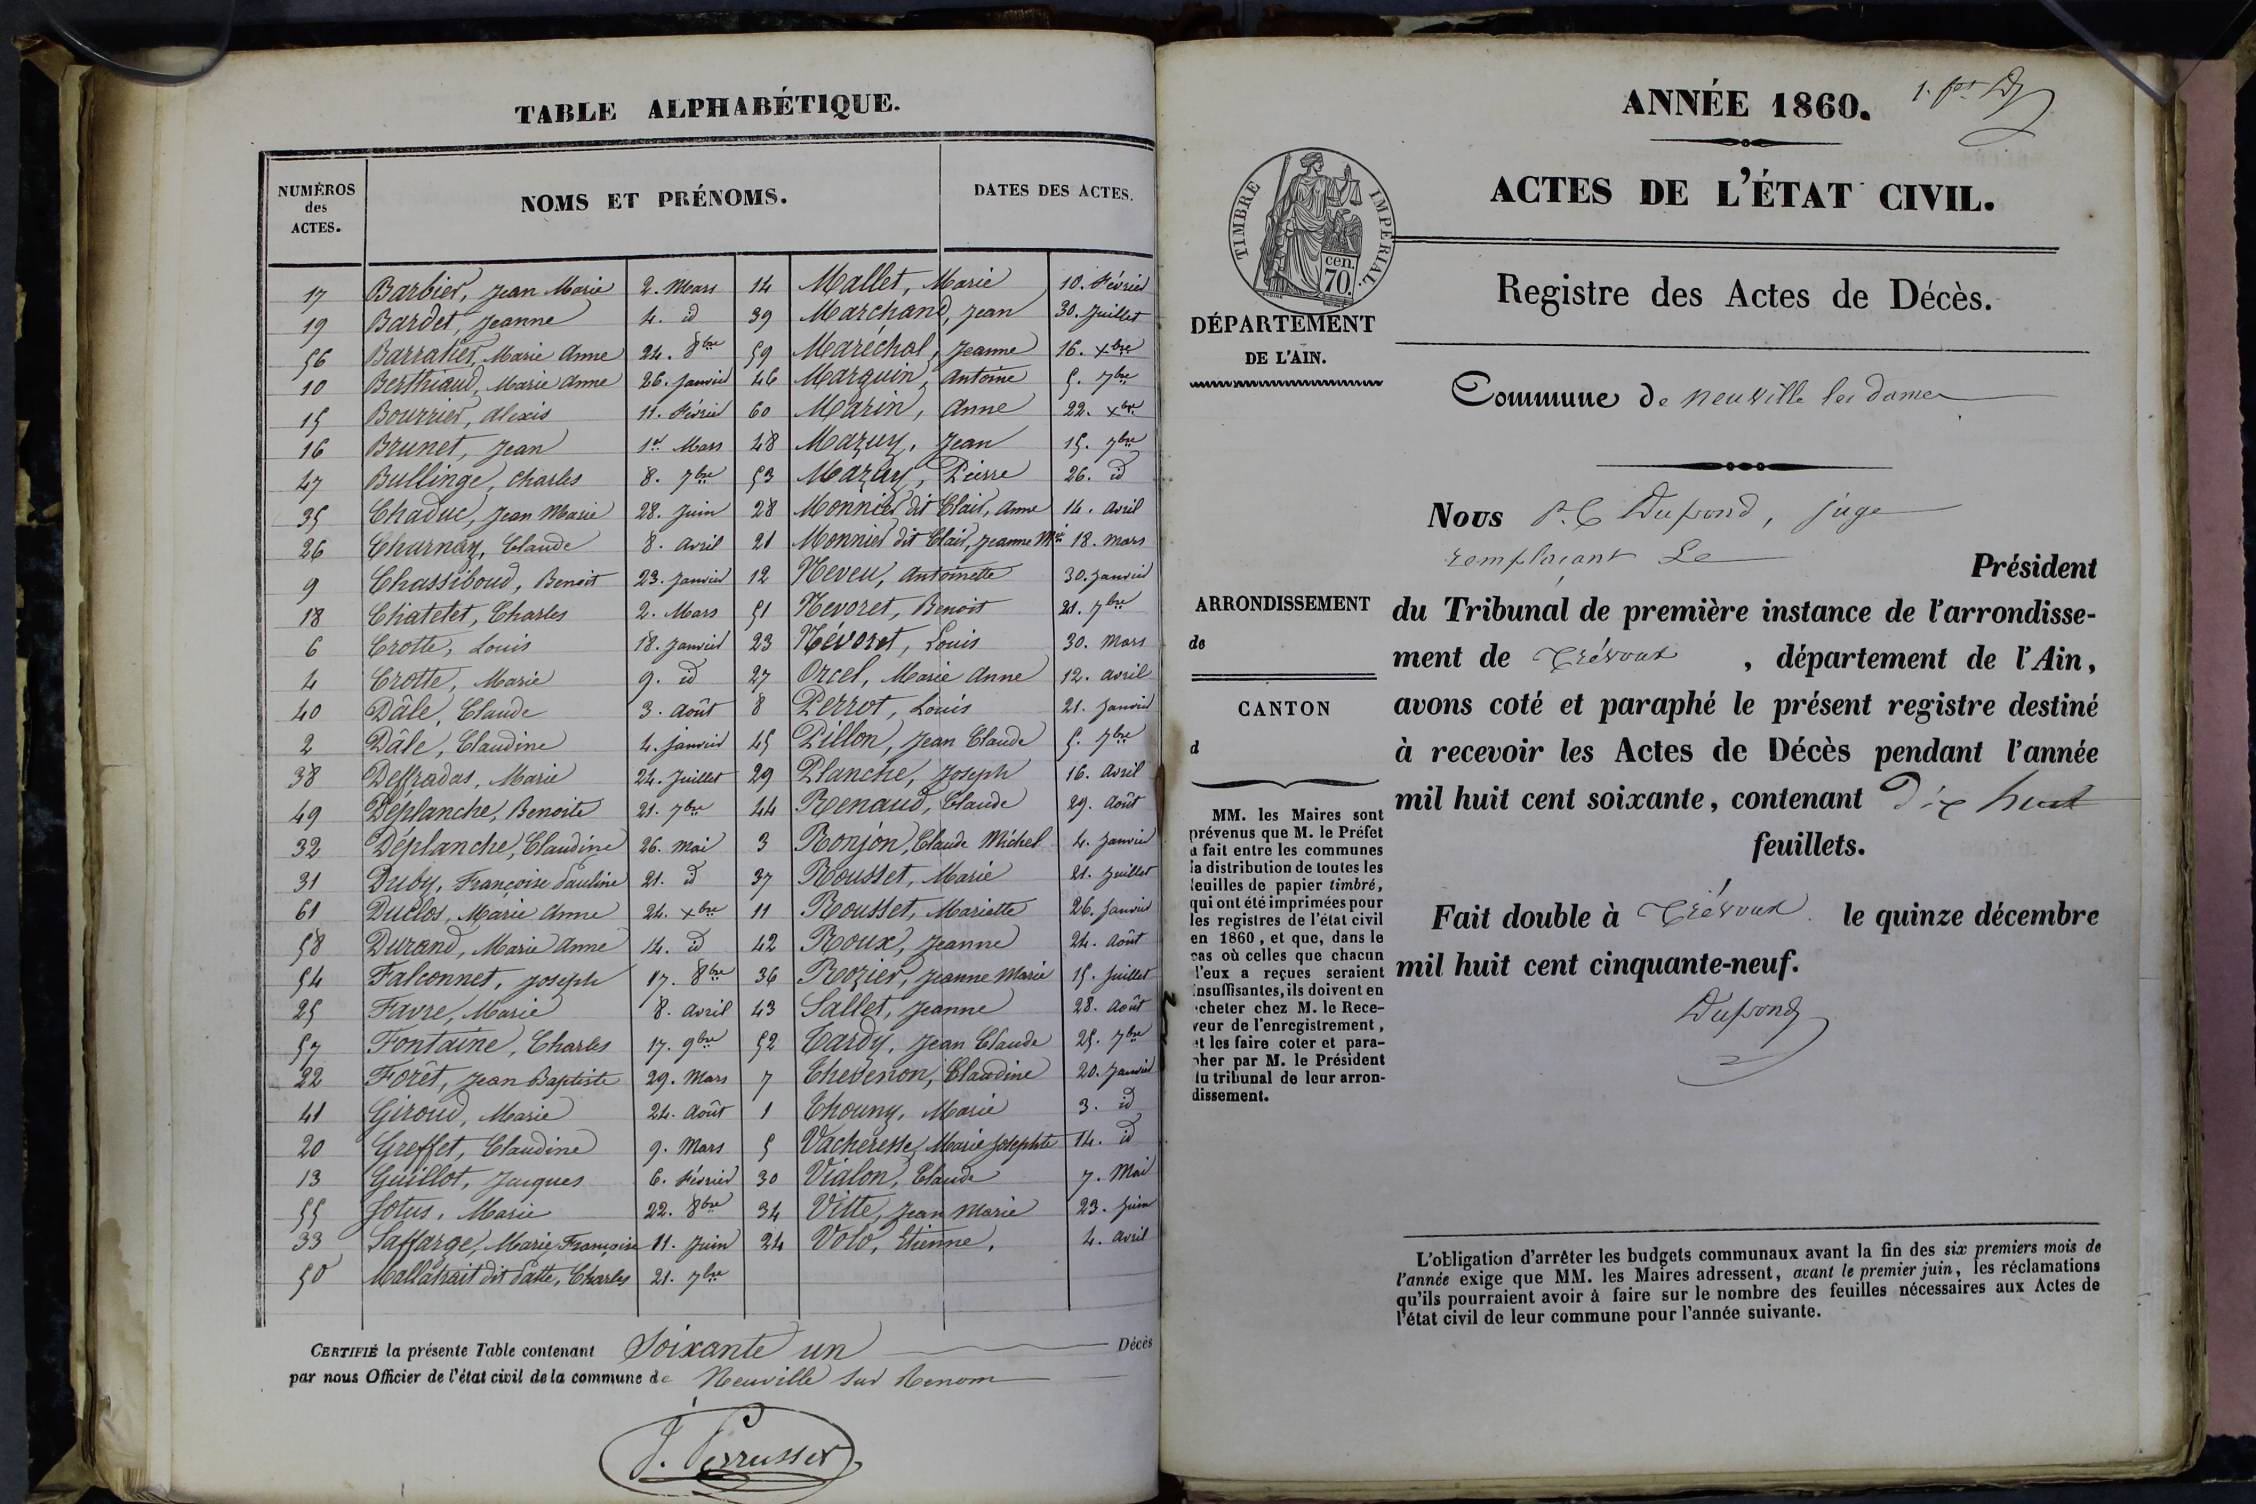 TABLE ALPHABÉTIQUE.
NUMÉROS des ACTES.
NOMS ET PRÉNOMS.
DATES DES ACTES.
17 Barbier, Jean Marie 2. Mars
19 Bardet, Jeanne 4. id
56 Barratier, Marie Anne 24. 8bre
10 Berthiaud, Marie Anne 26. Janvier
15 Bourrier, Alexis 11. Février
16 Brunet, Jean 1er Mars
47 Bullinge, Charles 8. 7bre
35 Chaduc, Jean Marie 28. Juin
26 Charnay, Claude 8. Avril
9 Chassiboud, Benoit 23. Janvier
18 Chatelet, Charles 2. Mars
6 Crotte, Louis 18. Janvier
4 Crotte, Marie 9. id
40 Dâle, Claude 3. Août
2 Dâle, Claudine 4. Janvier
38 Deffradas, Marie 24. Juillet
49 Déplanche, Benoite 21. 7bre
32 Déplanche, Claudine 26. Mai
31 Duby, Françoise Pauline 21. id
61 Duclos, Marie Anne 24. xbre
58 Durand, Marie Anne 14. id
54 Falconnet, Joseph 17. 8bre
25 Favre, Marie 8. Avril
57 Fontaine, Charles 17. 9bre
22 Forêt, Jean Baptiste 29. Mars
41 Giroud, Marie 24. Août
20 Greffet, Claudine 9. Mars
13 Guillot, Jacques 6. Février
55 Jotus, Marie 22. 8bre
33 Laffarge, Marie Françoise 11. Juin
50 Mallatrait dit Patte, Charles 21. 7bre
14 Mallet, Marie 10. Février
39 Marchand, Jean 30. Juillet
59 Maréchal, Jeanne 16. xbre
46 Marguin, Antoine 5. 7bre
60 Marin, Anne 22. xbre
48 Mazuy, Jean 15. 7bre
53 Mazuy, Pierre 26. id
28 Monnier dit Clair, Anne 14. Avril
21 Monnier dit Clair, Jeanne Mie 18. Mars
12 Neveu, Antoinette 30. Janvier
51 Nevoret, Benoit 21. 7bre
23 Névoret, Louis 30. Mars
27 Orcel, Marie Anne 12. Avril
8 Perrot, Louis 21. Janvier
45 Pillon, Jean Claude 5. 7bre
29 Planche, Joseph 16. Avril
44 Renaud, Claude 29. Août
3 Ronjon, Claude Michel 4. Janvier
37 Rousset, Marie 21. Juillet
11 Rousset, Mariette 26. Janvier
42 Roux, Jeanne 24. Août
36 Rozier, Jeanne Marie 15. Juillet
43 Sallet, Jeanne 28. Août
52 Tardy, Jean Claude 25. 7bre
7 Thevenon, Claudine 20. Janvier
1 Thouny, Marie 3. id
5 Vacheresse, Marie Josephte 14. id
30 Vialon, Claude 7. Mai
34 Vitte, Jean Marie 23. Juin
24 Volo, Etienne. 4. Avril
CERTIFIÉ la présente Table contenant Soixante un Décès
par nous Officier de l'état civil de la commune de Neuville sur Renom
J. Perrusset
ANNÉE 1860.
ACTES DE L'ÉTAT CIVIL.
TIMBRE IMPERIAL.
cen.
70.
Registre des Actes de Décès.
DÉPARTEMENT
DE L'AIN.
Commune de Neuville les dames
Nous P. C Dupond, juge
remplaçant Le Président
du Tribunal de première instance de l'arrondisse-
ment de Trévoux, département de l'Ain,
avons coté et paraphé le présent registre destiné
à recevoir les Actes de Décès pendant l'année
mil huit cent soixante, contenant Dix huit
feuillets.
Fait double à Trévoux le quinze décembre
mil huit cent cinquante-neuf.
Dupond
ARRONDISSEMENT
de
CANTON
d
MM. les Maires sont
prévenus que M. le Préfet
a fait entre les communes
la distribution de toutes les
feuilles de papier timbré,
qui ont été imprimées pour
les registres de l'état civil
en 1860, et que, dans le
cas où celles que chacun
d'eux a reçues seraient
insuffisantes, ils doivent en
acheter chez M. le Rece-
veur de l'enregistrement,
et les faire coter et para-
pher par M. le Président
du tribunal de leur arron-
dissement.
L'obligation d'arrêter les budgets communaux avant la fin des six premiers mois de
l'année exige que MM. les Maires adressent, avant le premier juin, les réclamations
qu'ils pourraient avoir à faire sur le nombre des feuilles nécessaires aux Actes de
l'état civil de leur commune pour l'année suivante.